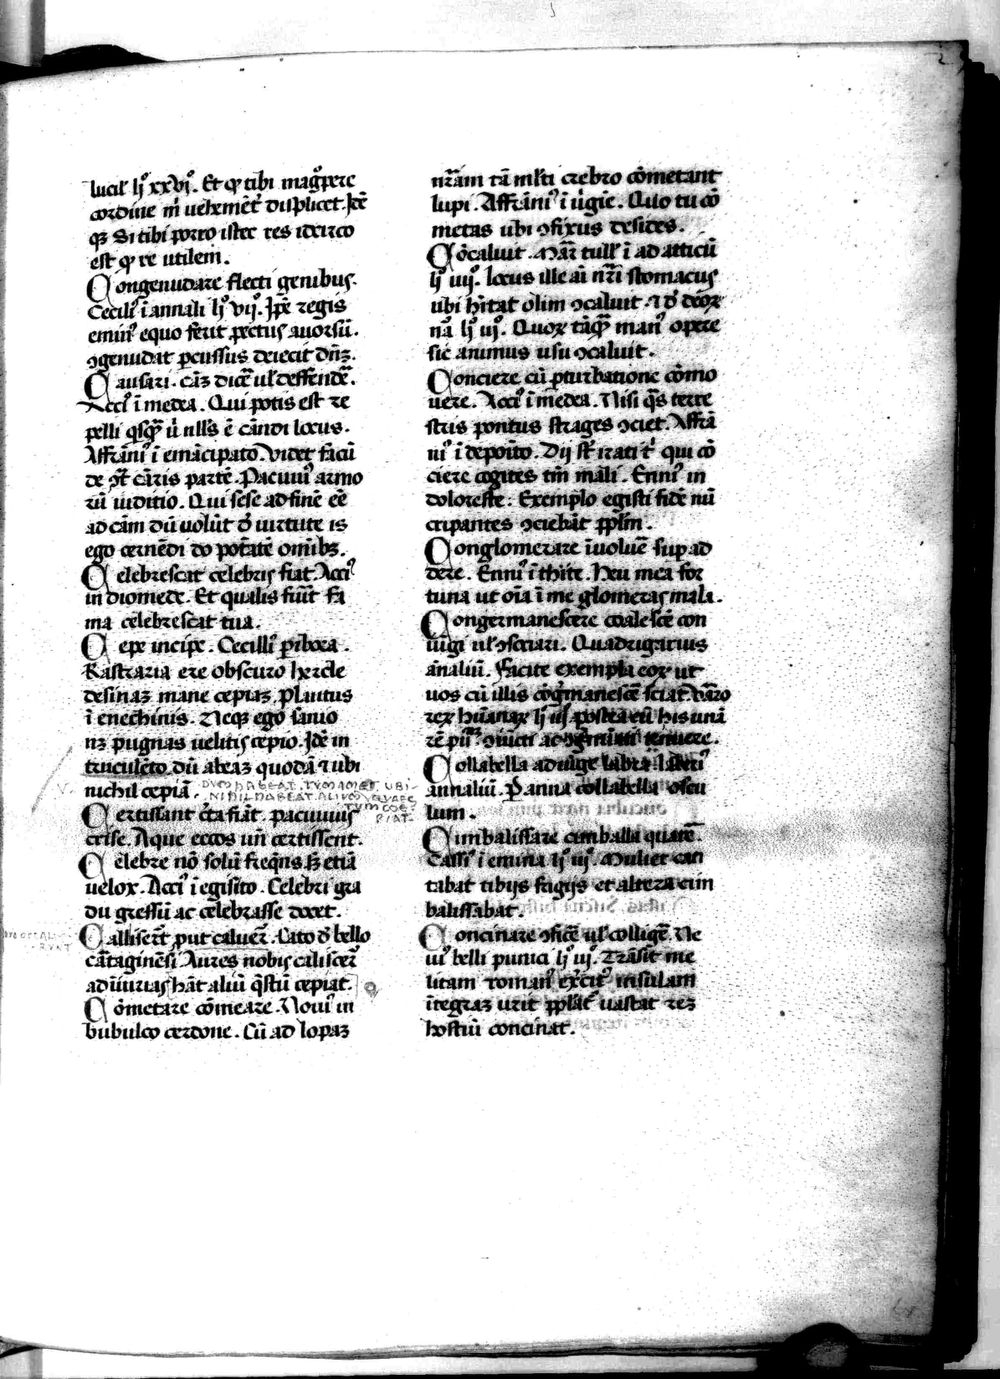 lucil' li° xxvi°. Et qͥ tibi mag°pere
cordiue mͥ vehemēt' displicet. Idē
qꝫ Si tibi porro istec res idcirco
est qͥ re utilem.
Congenudare flecti genibus.
Cecili' ī annali li° vij°. Ipē regis
emin' equo ferit pectus auorsū.
ꝯgenudat pcussus deiecit dn̄ꝫ.
Causari. cāꝫ dicē ul' deffendē.
Acci' ī medea. Qui potis est re
pelli qͥsqͣꝫ ū nll's ē cāndi locus.
Affrāni' ī emācipato. Videt faciū
de qt cāris partē. Pacuui' armo
rū iuditio. Qui sese ad finē eē
ad cām dū volūt d' virtute is
ego cernēdi do potātē omībꝫ.
Celebrescat celebris fiat. Acci'
in diomede. Et qualis fuūt fa
ma celebrescat tua.
Cepe incipe. Cecilli' piboea.
Rastraria ere obscuro hercle
desinaꝫ mane cepiaꝫ. plautus
ī enechinis. Neqꝫ ego sanio
nꝫ pugnas uelitis cepio. Idē in
truculēto dū abeaꝫ quodā ⁊ ubi
nichil cepiā. DVM HABEAT. TVM AMET, VBI
NIHIL HABEAT ALIVM QVAES
TVM COE
PIAT
Certissant cͥta fiāt. pacuuius
crise. Aque eccos un̄ certissent.
Celebre nō solū freqn̄s sꝫ etiā
uelox. Acci' ī egisito. Celebri gra
du gressū ac celebrasse decet.
Calliserūt put caluer̄. Cato d' bello
cātaginēsi Aures nobis caliscer̄
ad iniurias hāt aliū qͣstū cepiat.
Cōmetare cōmeare. Noui' in
bubulco cerdone. Cū ad lopaꝫ
nr̄am tā ml'ti crebro cōmetant
lupi. Affrāni' ī ūgie. Quo tu cō
metas ubi ꝯfixus desides.
Cōcaluit. Mar̄ tull' ī ad atticū
li° uij°. locus ille ai nr̄i stomacus
ubi hītat olim ꝯcaluit. ⁊ d' deoꝝ
nā li° ij°. Quoꝝ tāqͣꝫ man' opere
sic animus usu ꝯcaluit.
Conciere cū pturbatione cōmo
uere. Acci' ī medea. Nisi qͣs terre
stris pontus strages ꝯciet. Affrā
ni' ī depoīto. Dij st̄ irati t' qui cō
ciere cogites tm̄ mali. Enni' in
doloreste: Exemplo egisti fidē nū
cupantes ꝯciebāt ppl'm.
Conglomerare īvoluē sup ad
dere. Enni' ī thite. Neu mea for
tuna ut oīa ī me glomeras mala.
Congermanescere coalescē con
iūgi ul' ꝯsociari. Quadrigarius
ānaliū. Facite exempla eoꝝ ut
uos cū illis cōgermanescē sciat. Varro
Collabella ad iūge labra. Laberi'
annaliū. P anna collabella oscu
lum.
Cimbalissare cimballa quatē.
Cassi' ī emina li° iij°. Mulier can
tabat tibijs frigijs et altera cim
balissabat.
Concinare ꝯficē ul' colligē. Ne
ui' belli punici li° iij°. Trāsit me
litam roman' exercit' insulam
ītegraꝫ urit ppl'at' vastat reꝫ
hostiū concinat.